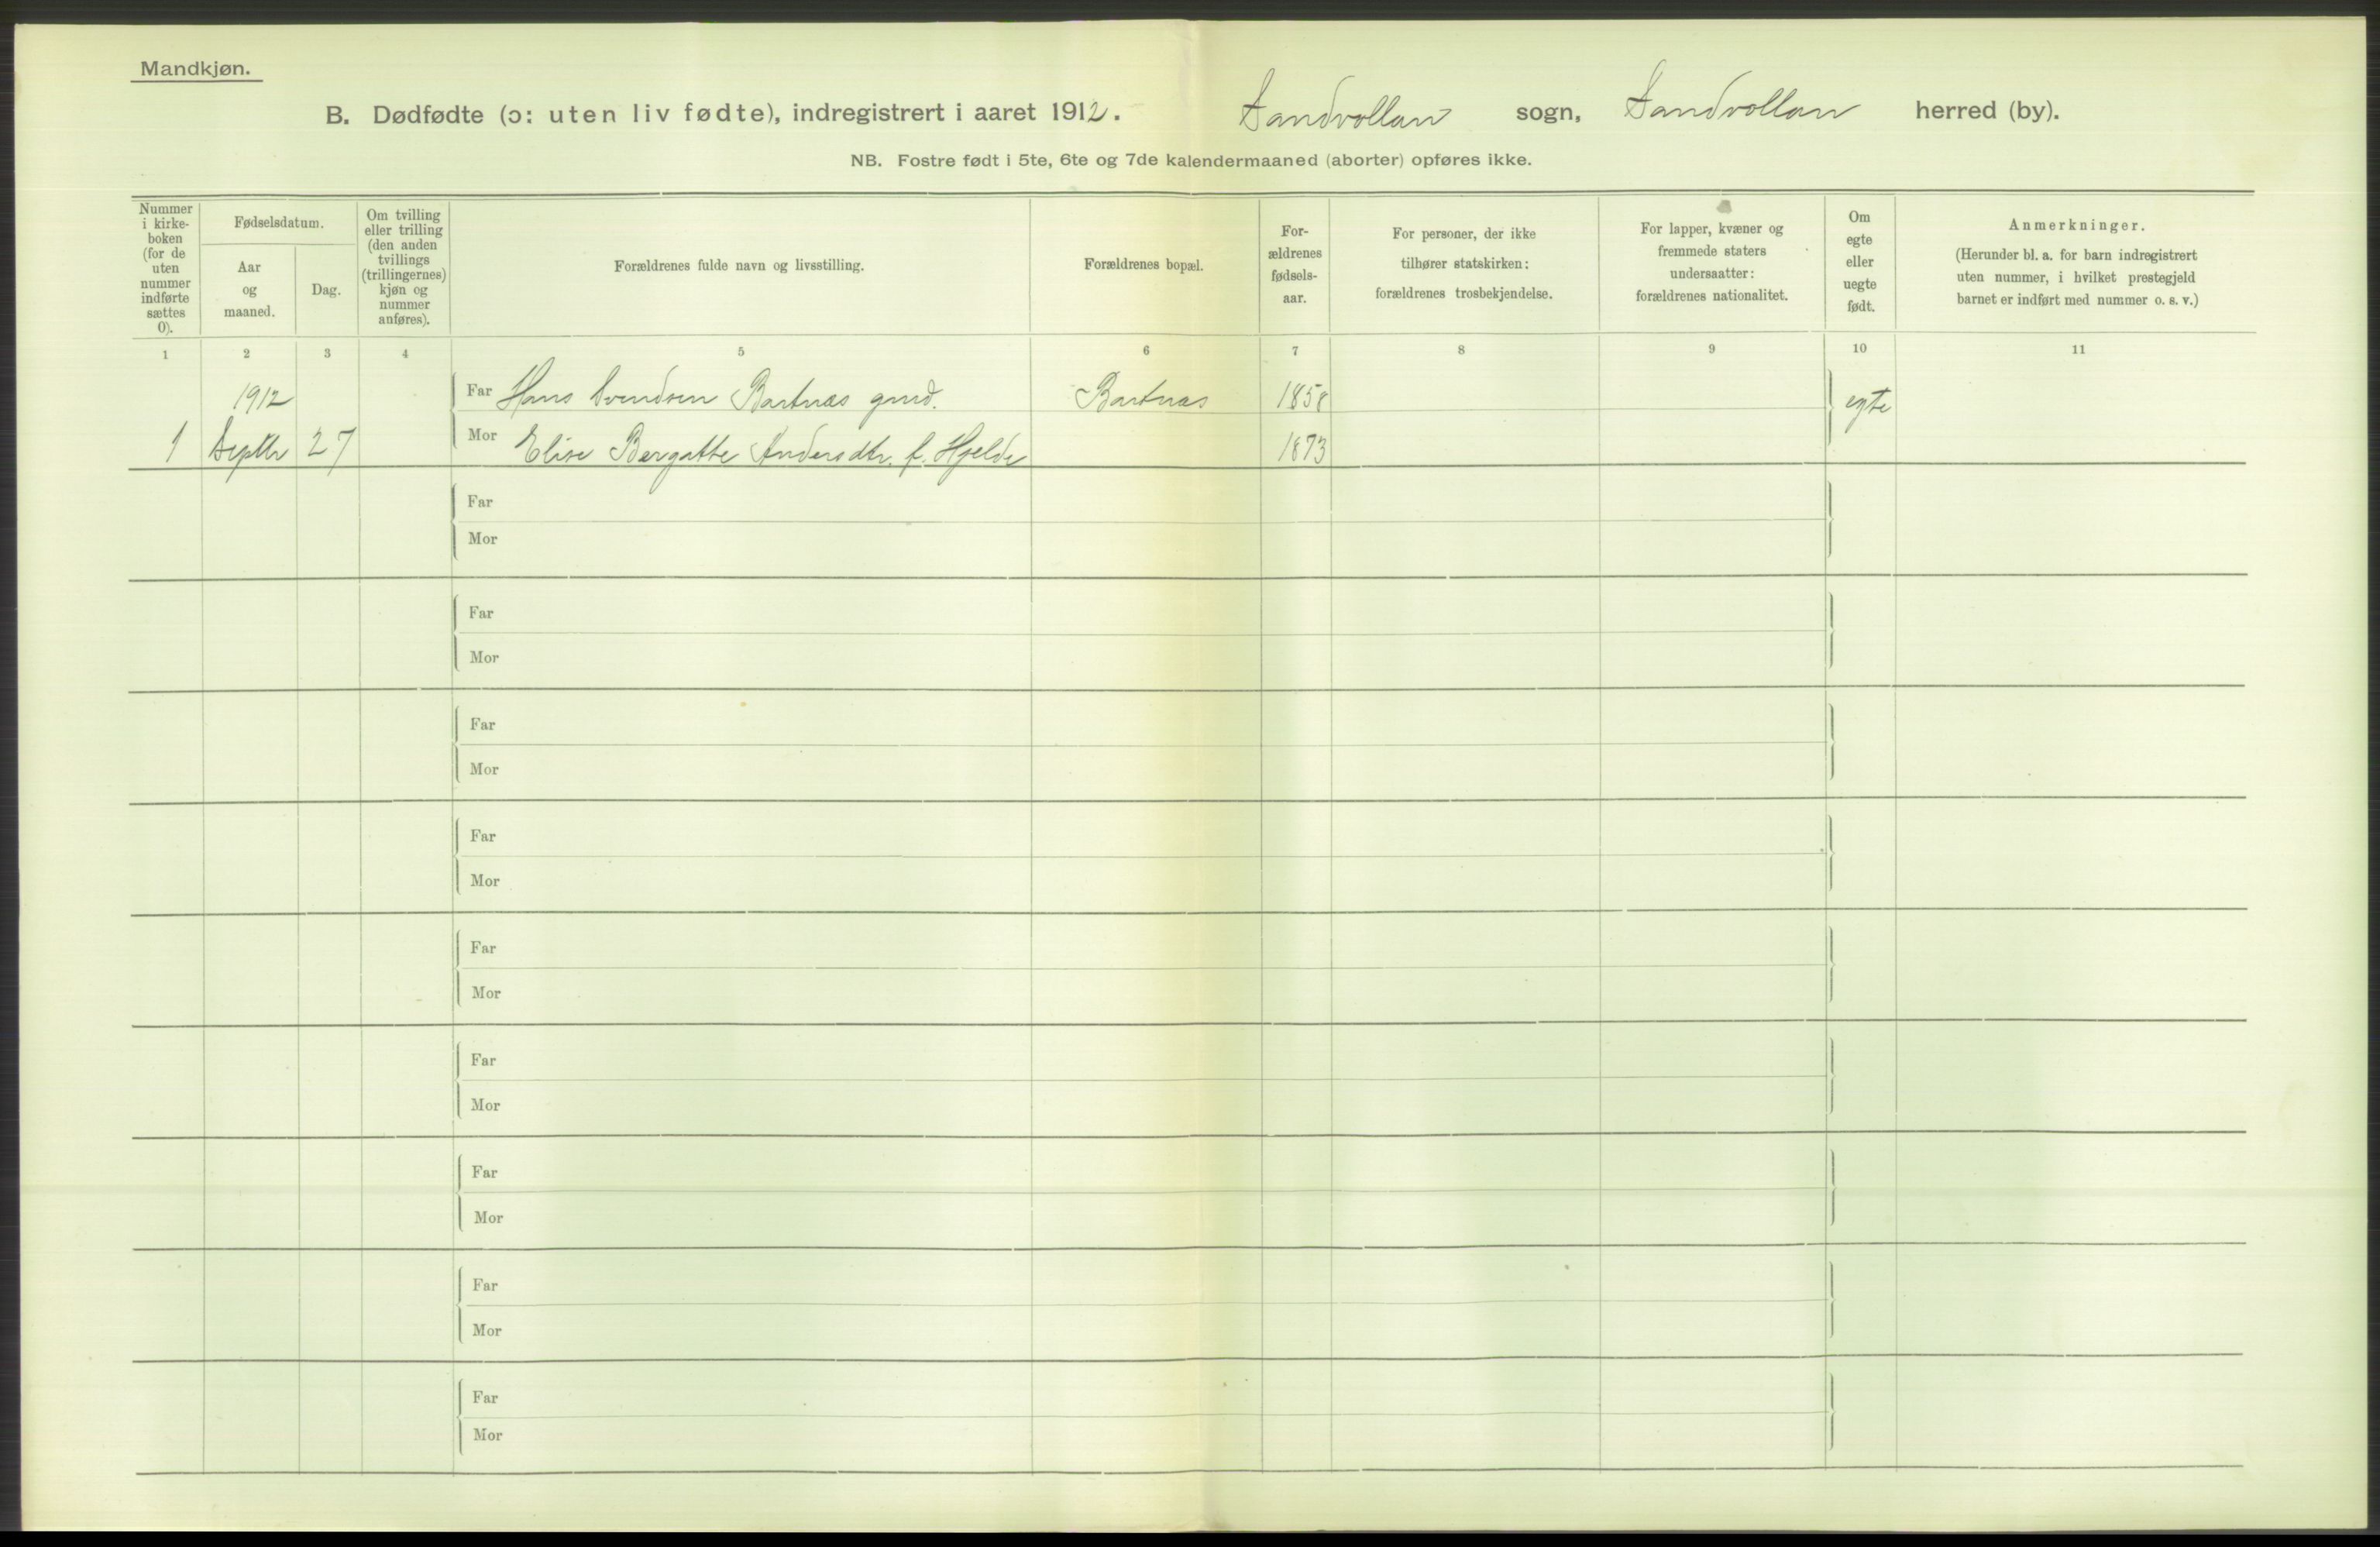 Mandkjøn.
B. Dødfødte (ɔ: uten liv fødte), indregistrert i aaret 1912. Sandvollan sogn, Sandvollan herred (by).
NB. Fostre født i 5te, 6te og 7de kalendermaaned (aborter) opføres ikke.
Nummer
i kirke-
boken
(for de
uten
nummer
indførte
sættes
0).
Fødselsdatum.
Aar
og
maaned.
Dag.
Om tvilling
eller trilling
(den anden
tvillings
(trillingernes)
kjøn og
nummer
anføres).
Forældrenes fulde navn og livsstilling.
Forældrenes bopæl.
For-
ældrenes
fødsels-
aar.
For personer, der ikke
tilhører statskirken:
forældrenes trosbekjendelse.
For lapper, kvæner og
fremmede staters
undersaatter:
forældrenes nationalitet.
Om
egte
eller
uegte
født.
Anmerkninger.
(Herunder bl. a. for barn indregistrert
uten nummer, i hvilket prestegjeld
barnet er indført med nummer o. s. v.)
1 2 3 4 5 6 7 8 9 10 11
1912 Far Hans Svendsen Bartnæs gmd. Bartnæs 1858 egte
1 Septbr 27 Mor Elise Bergitte Andersdtr. f. Hjelde 1873
Far
Mor
Far
Mor
Far
Mor
Far
Mor
Far
Mor
Far
Mor
Far
Mor
Far
Mor
Far
Mor